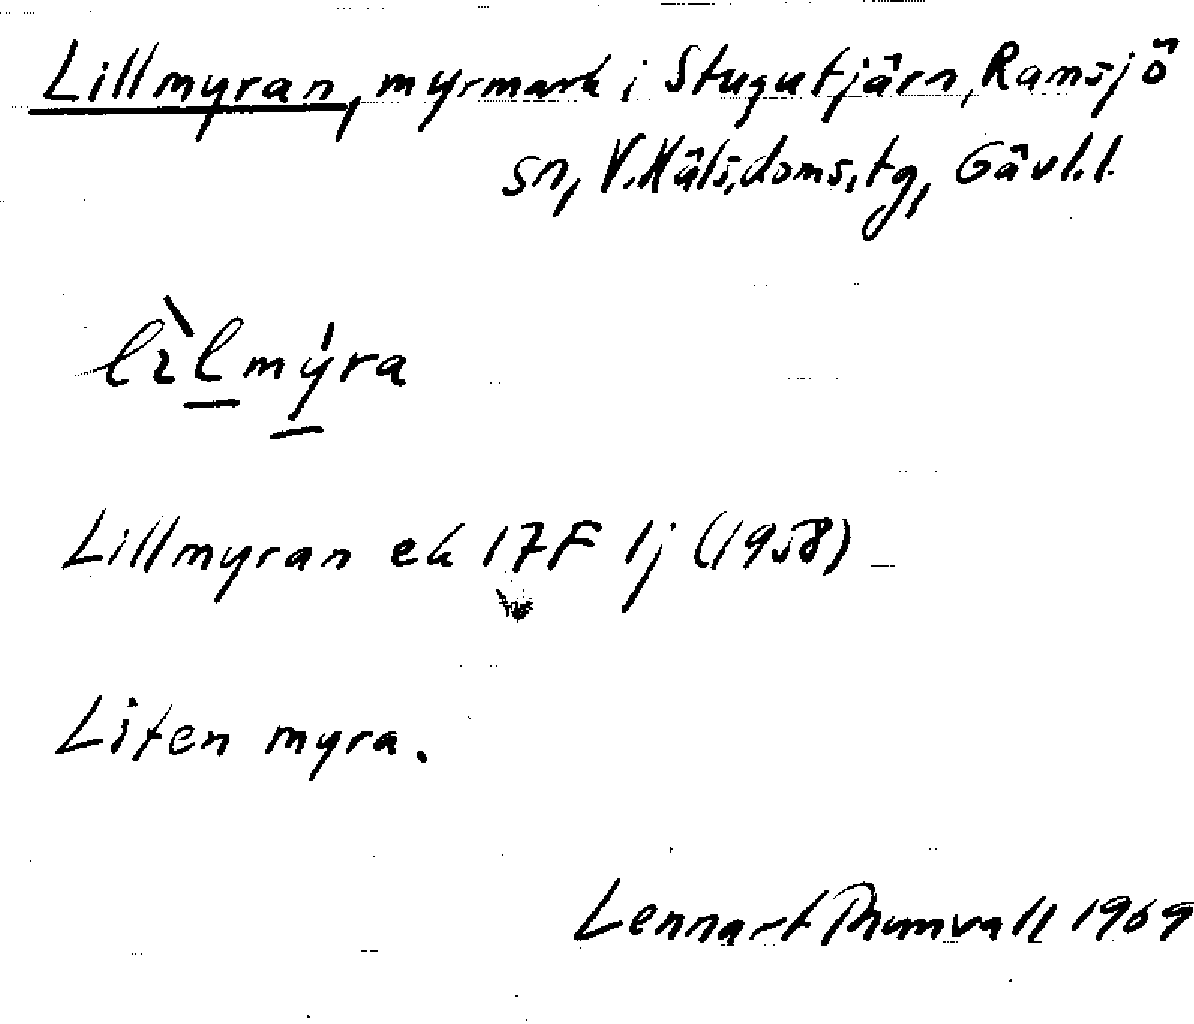 Lillmyran, myrmark i Stugutjärn, Ramsjö
sn, V. Häls. doms. tg, Gävl. l.
lìlmýra
Lillmyran ek 17F 1j (1958)
Liten myra.
Lennart 1969